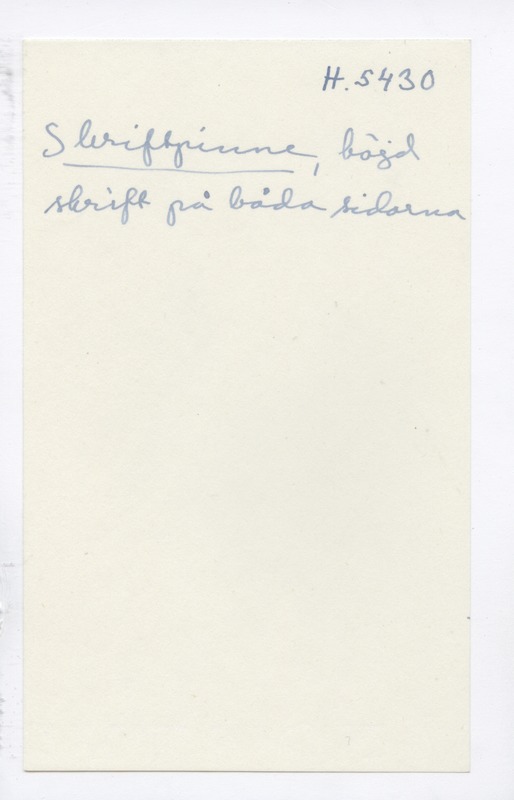 H. 5430
Skriftpinne, böjd
skrift på båda sidorna